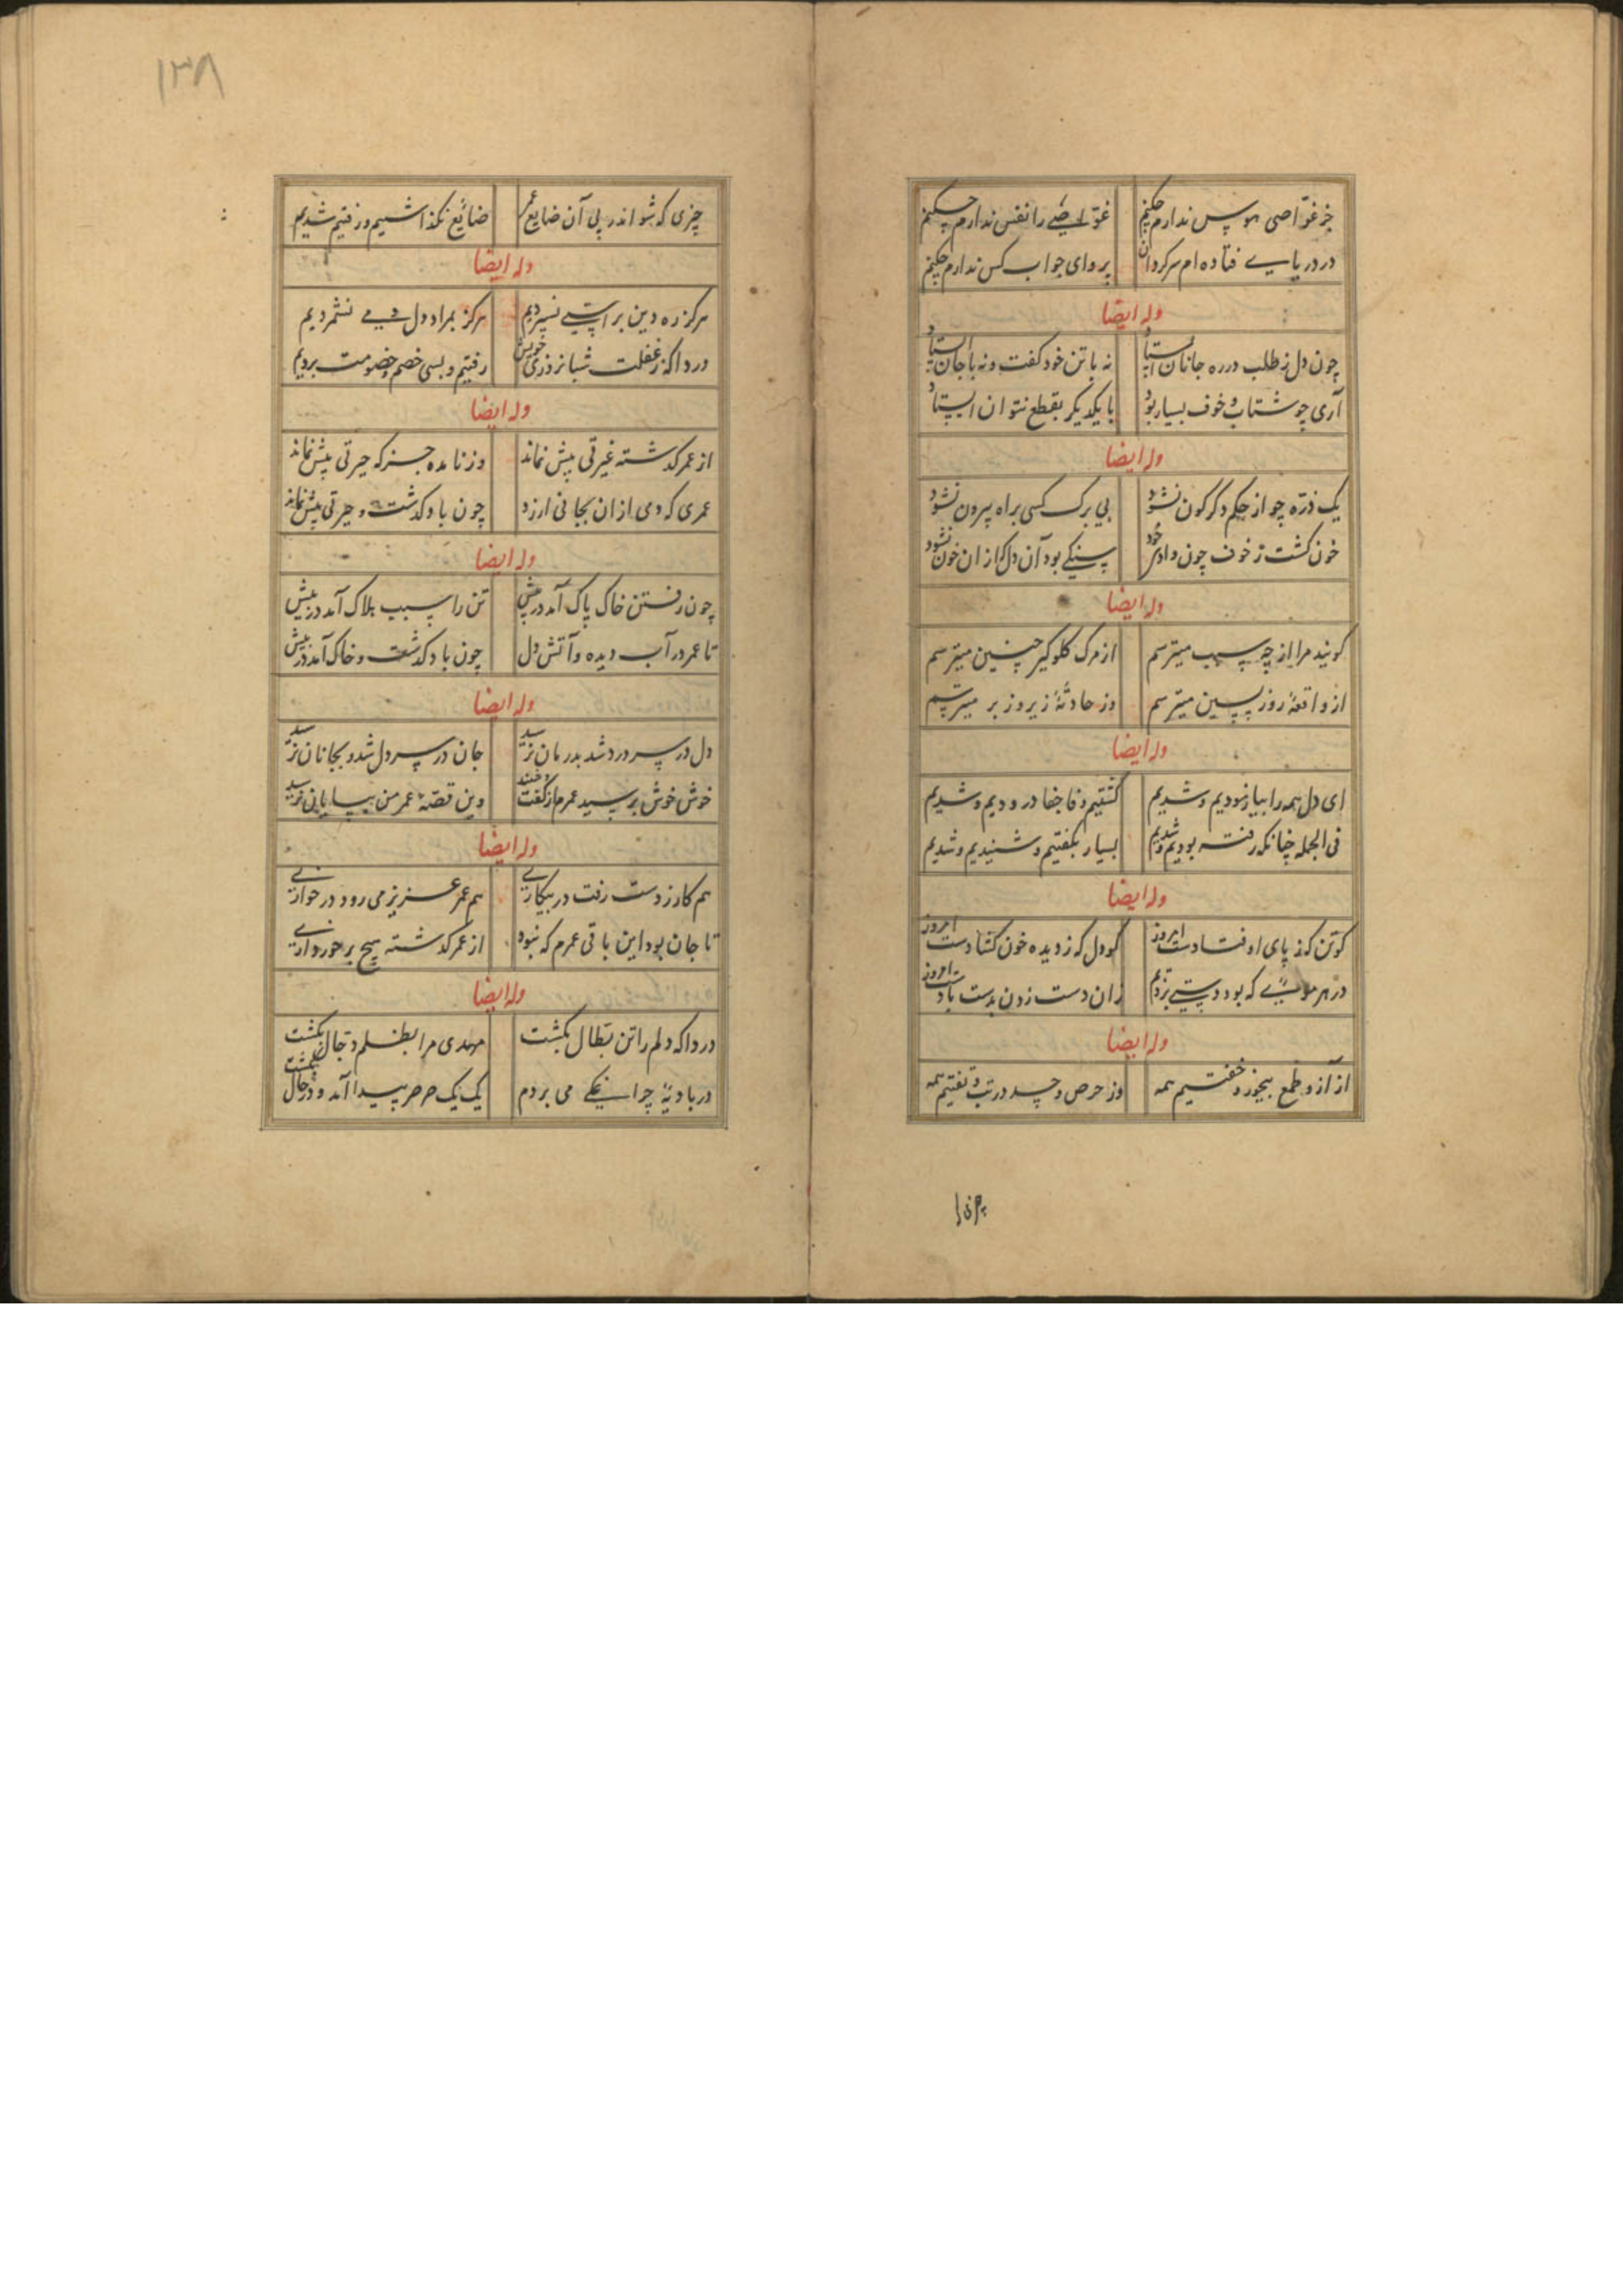 جز غوّاصی هوس ندارم چکنم غوّاصی را نفس ندارم چکنم
در دریایی فتاده ام سرکردان پروای جواب کس ندارم چکنم
وله ایضا
چون دل ز طلب در ره جانان استاد نه با تن خود کفت و نه با جان استاد
آری چو شتاب و خوف بسیار بود با یکدیکر بقطع نتوان استاد
وله ایضا
یک ذرّه چو از حکم دکرکون نشود بی برک کسی براه بیرون نشود
خون کشت ز خوف چون و ادر خود سنکی بود آن دل که ازان خون نشود
وله ایضا
کویند مرا از چه سبب میترسم از مرک کلوکیر چنین میترسم
از واقعهٔ روز پسین میترسم وز حادثهٔ زیر و زبر میترسم
وله ایضا
ای دل همه را بیازمودیم و شدیم کشتیم وفا جفا درودیم و شدیم
فی الجمله چنانکه رفته بودیم شدیم بسیار بکفتیم و شنیدیم و شدیم
وله ایضا
کو تن که ز پای اوفتادست امروز کو دل که ز دیده خون کشادست امروز
در هر که بود دستی بزدیم زان دست زدن بدست بادست امروز
وله ایضا
از آز و طمع بیخور و خفتیم همه وز حرص و حسد در تب و تفتیم همه
۱۳۸
چیزی که شو اندر پی آن ضایع عمر ضائع نکذاشتیم و رفتیم شدیم
وله ایضا
هرکز ره دین براستی نسپردیم هرکز بمراد دل دمی نشمردیم
دردا که ز غفلت شبانروزی خویش رفتیم و بسی خصم و خصومت بردیم
وله ایضا
از عمر کذشته غیرتی بیش نماند وز نامده جز که حیرتی بیش نماند
عمری که دمی ازان بجانی ارزد چون باد کذشت و حیرتی بیش نماند
وله ایضا
چون رفتن خاک پاک آمد در پیش تن را سبب هلاک آمد در پیش
تا عمر در آب دیده و آتش دل چون باد کذشت و خاک آمد در پیش
وله ایضا
دل در سر درد شد بدرمان نرسید جان در سر دل شد و بجانان نرسید
خوش خوش برسید عمرم از کفت و وین قصّهٔ عمر من بپایان نرسید
وله ایضا
هم کار ز دست رفت در بیکاری هم عمر عزیز می رود در خواری
تا جان بود این باقی عمرم که نبود از عمر کذشته هیچ برخورداری
وله ایضا
دردا که دلم را تن بطّال بکشت مهدی مرا بظلم دجّال بکشت
در بادیهٔ چراغکی می بردم یک یک صرصر پیدا آمد و در حال بکشت